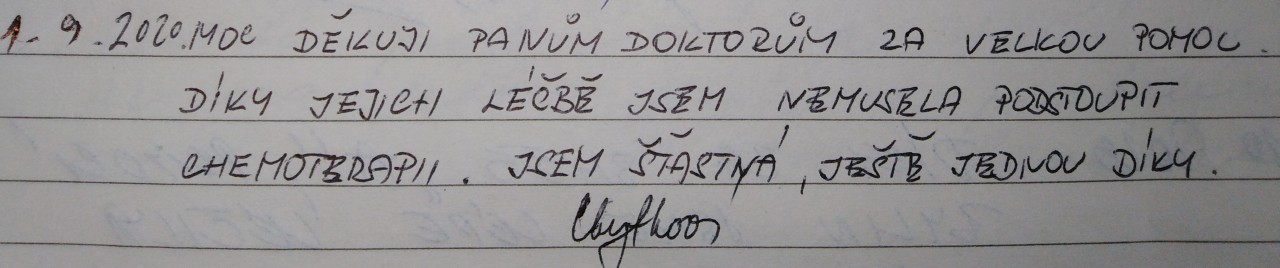 1. 9. 2020. MOC DĚKUJI PANŮM DOKTORŮM ZA VELKOU POMOC.
DÍKY JEJICH LÉČBĚ JSEM NEMUSELA PODSTOUPIT
CHEMOTERAPII. JSEM ŠŤASTNÁ, JEŠTĚ JEDNOU DÍKY.